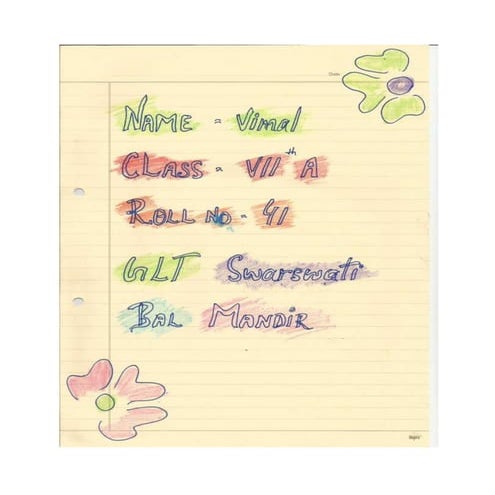 NAME = Vimal
CLASS = VII th A
ROLL NO = 41
GLT Swarswati
BAL MANDIR